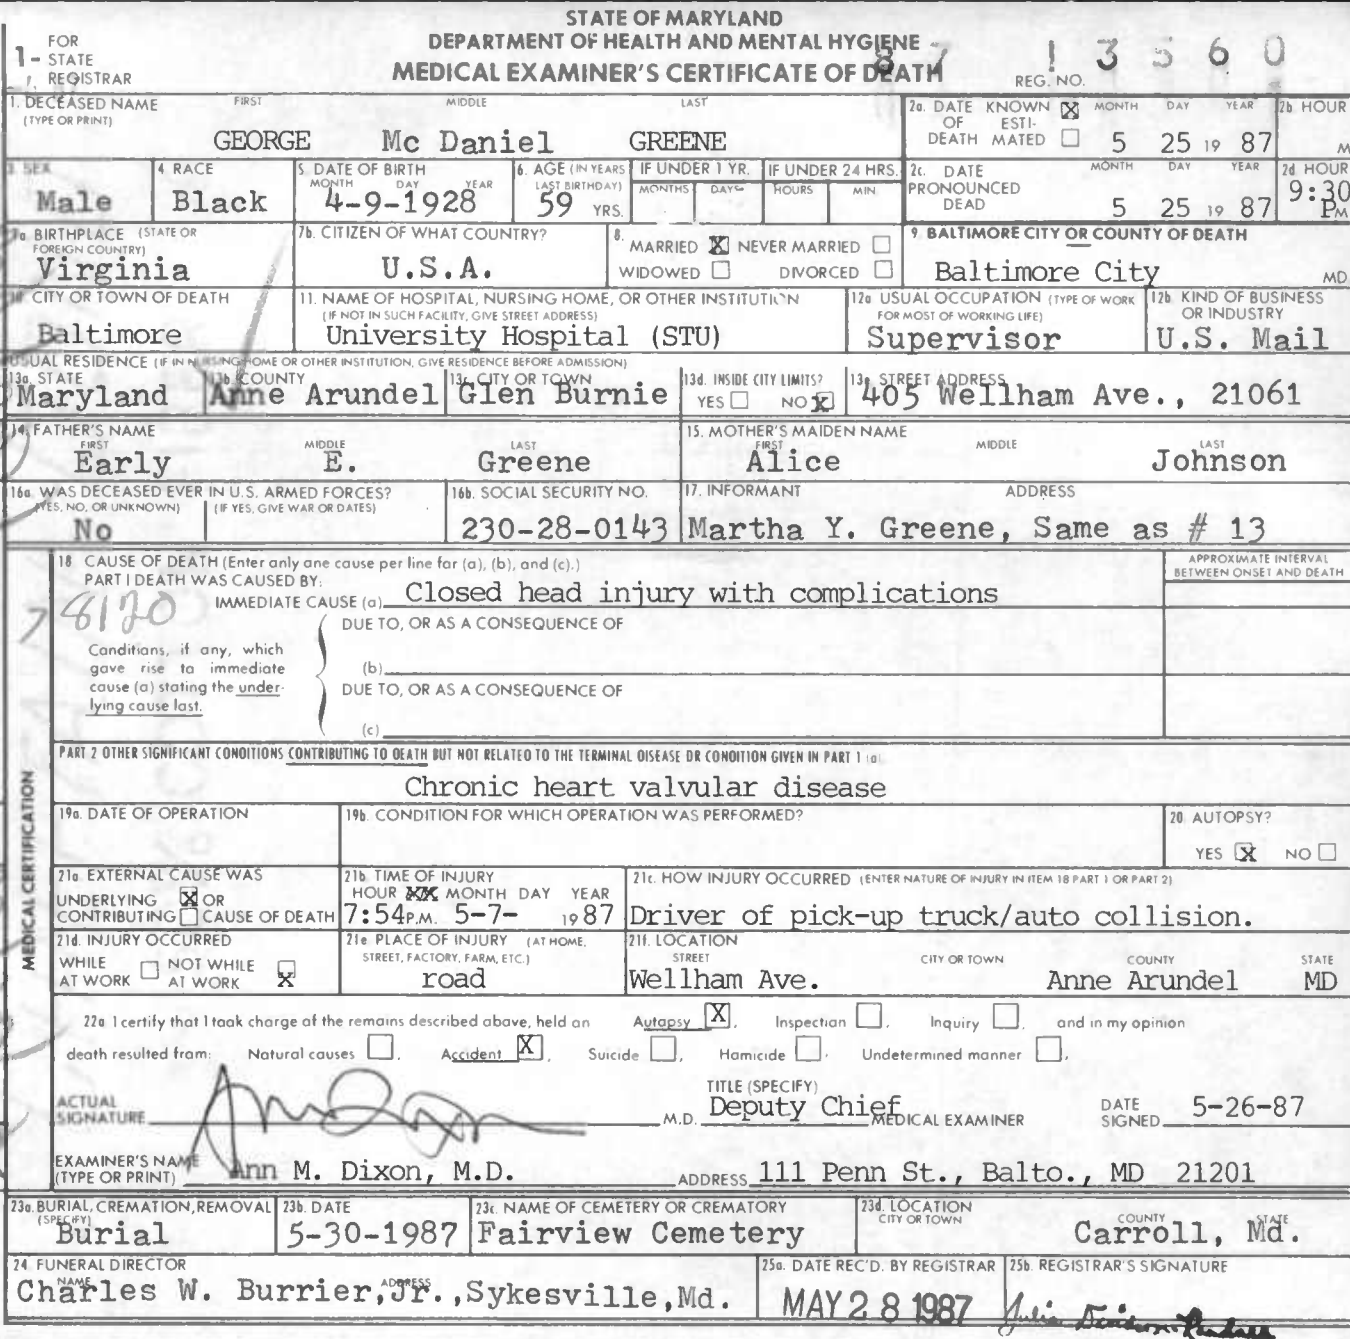 STATE OF MARYLAND
DEPARTMENT OF HEALTH AND MENTAL HYGIENE
MEDICAL EXAMINER'S CERTIFICATE OF DEATH
1- FOR STATE REGISTRAR
87 13560
REG. NO.
1. DECEASED NAME (TYPE OR PRINT) FIRST MIDDLE LAST
GEORGE Mc Daniel GREENE
2a. DATE OF DEATH KNOWN X ESTIMATED MONTH DAY YEAR
5 25 19 87
2b. HOUR M
3 SEX
Male
4 RACE
Black
5. DATE OF BIRTH MONTH DAY YEAR
4-9-1928
6. AGE (IN YEARS LAST BIRTHDAY)
59 YRS.
IF UNDER 1 YR. MONTHS DAYS
IF UNDER 24 HRS. HOURS MIN.
2c. DATE PRONOUNCED DEAD MONTH DAY YEAR
5 25 19 87
2d HOUR
9:30 PM
7a BIRTHPLACE (STATE OR FOREIGN COUNTRY)
Virginia
7b. CITIZEN OF WHAT COUNTRY?
U.S.A.
8. MARRIED X NEVER MARRIED
WIDOWED DIVORCED
9 BALTIMORE CITY OR COUNTY OF DEATH
Baltimore City MD
10 CITY OR TOWN OF DEATH
Baltimore
11. NAME OF HOSPITAL, NURSING HOME, OR OTHER INSTITUTION
(IF NOT IN SUCH FACILITY, GIVE STREET ADDRESS)
University Hospital (STU)
12a USUAL OCCUPATION (TYPE OF WORK FOR MOST OF WORKING LIFE)
Supervisor
12b. KIND OF BUSINESS OR INDUSTRY
U.S. Mail
USUAL RESIDENCE (IF IN NURSING HOME OR OTHER INSTITUTION, GIVE RESIDENCE BEFORE ADMISSION)
13a. STATE
Maryland
13b. COUNTY
Anne Arundel
13c. CITY OR TOWN
Glen Burnie
13d. INSIDE CITY LIMITS?
YES NO X
13e. STREET ADDRESS
405 Wellham Ave., 21061
14. FATHER'S NAME FIRST MIDDLE LAST
Early E. Greene
15. MOTHER'S MAIDEN NAME FIRST MIDDLE LAST
Alice Johnson
16a. WAS DECEASED EVER IN U.S. ARMED FORCES?
(YES, NO, OR UNKNOWN) (IF YES, GIVE WAR OR DATES)
No
16b. SOCIAL SECURITY NO.
230-28-0143
17. INFORMANT ADDRESS
Martha Y. Greene, Same as # 13
MEDICAL CERTIFICATION
18 CAUSE OF DEATH (Enter only one cause per line for (a), (b), and (c).)
PART I DEATH WAS CAUSED BY:
APPROXIMATE INTERVAL BETWEEN ONSET AND DEATH
8120
IMMEDIATE CAUSE (a) Closed head injury with complications
DUE TO, OR AS A CONSEQUENCE OF
Conditions, if any, which gave rise to immediate cause (a) stating the underlying cause last.
(b)
DUE TO, OR AS A CONSEQUENCE OF
(c)
PART 2 OTHER SIGNIFICANT CONDITIONS CONTRIBUTING TO DEATH BUT NOT RELATED TO THE TERMINAL DISEASE OR CONDITION GIVEN IN PART 1 (a)
Chronic heart valvular disease
19a. DATE OF OPERATION
19b. CONDITION FOR WHICH OPERATION WAS PERFORMED?
20 AUTOPSY?
YES X NO
21a. EXTERNAL CAUSE WAS
UNDERLYING X OR
CONTRIBUTING CAUSE OF DEATH
21b. TIME OF INJURY
HOUR XX MONTH DAY YEAR
7:54P.M. 5-7- 1987
21c. HOW INJURY OCCURRED (ENTER NATURE OF INJURY IN ITEM 18 PART 1 OR PART 2)
Driver of pick-up truck/auto collision.
21d. INJURY OCCURRED
WHILE AT WORK NOT WHILE AT WORK X
21e PLACE OF INJURY (AT HOME, STREET, FACTORY, FARM, ETC.)
road
21f. LOCATION
STREET CITY OR TOWN COUNTY STATE
Wellham Ave. Anne Arundel MD
22a I certify that I took charge of the remains described above, held an Autopsy X, Inspection , Inquiry , and in my opinion
death resulted from: Natural causes , Accident X, Suicide , Homicide , Undetermined manner ,
ACTUAL SIGNATURE M.D.
TITLE (SPECIFY)
Deputy Chief MEDICAL EXAMINER
DATE SIGNED 5-26-87
EXAMINER'S NAME (TYPE OR PRINT) Ann M. Dixon, M.D.
ADDRESS 111 Penn St., Balto., MD 21201
23a. BURIAL, CREMATION, REMOVAL (SPECIFY)
Burial
23b. DATE
5-30-1987
23c. NAME OF CEMETERY OR CREMATORY
Fairview Cemetery
23d. LOCATION
CITY OR TOWN COUNTY STATE
Carroll, Md.
24 FUNERAL DIRECTOR
NAME ADDRESS
Charles W. Burrier, Jr.,Sykesville,Md.
25a. DATE REC'D. BY REGISTRAR
MAY 28 1987
25b. REGISTRAR'S SIGNATURE